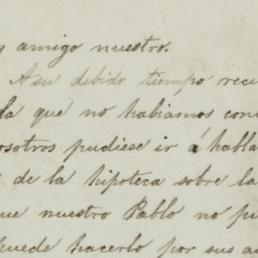 y amigo nuestro.
A su debido tiempo reci
la que no habiamos con
osotros pudiese ir á habla
de la hipoteca sobre la
ue nuestro Pablo no pu
puede hacerlo por sus a